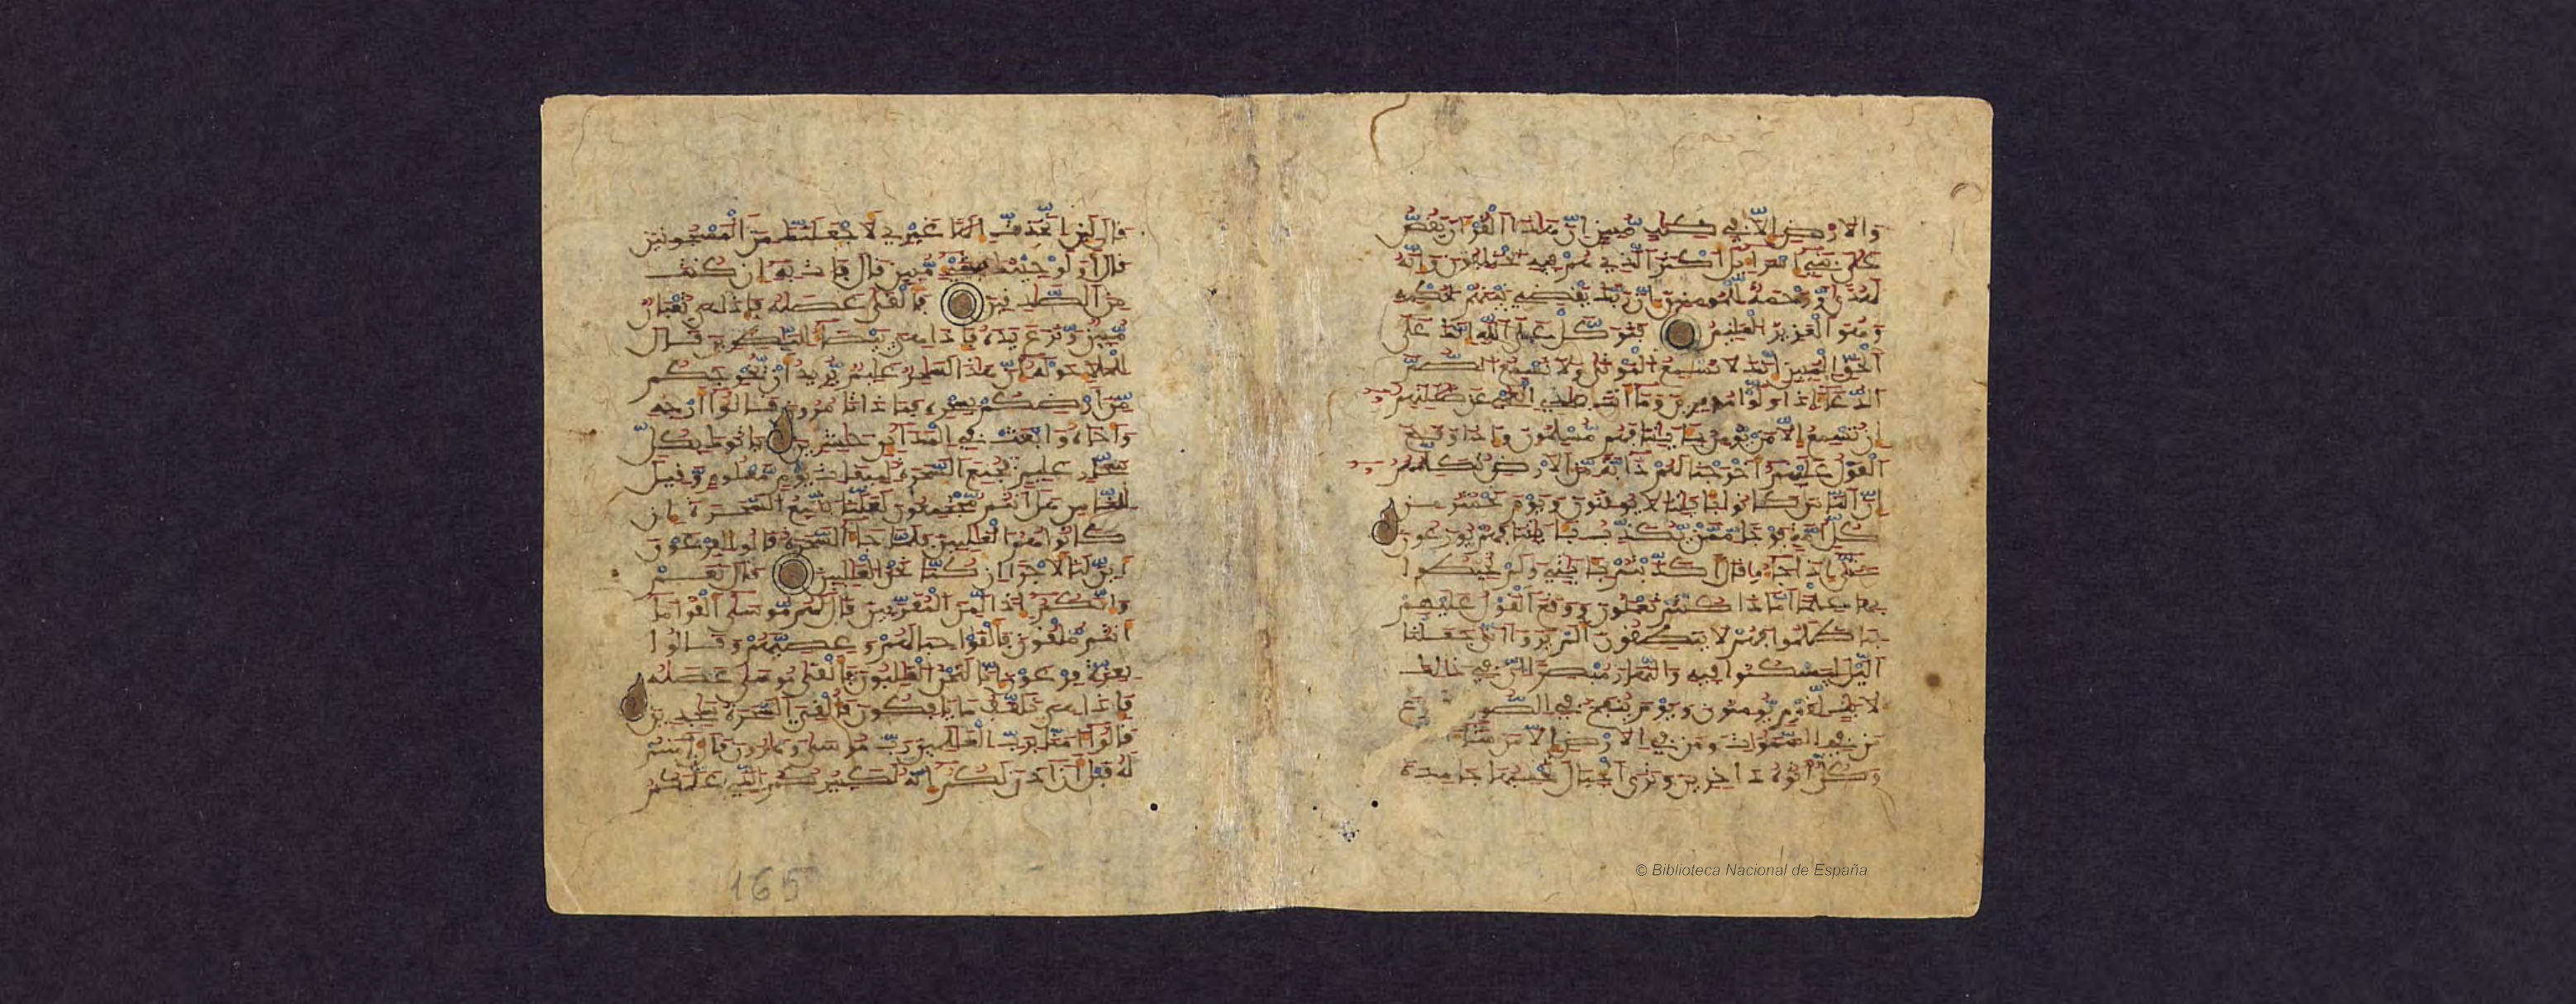 والارض الا في كتب مبين ان هذا القران يقص
على بني اسرايل اكثر الذي هم فيه يختلفون وانه
لهدى ورحمة للمومنين ان ربك يقضي بينهم بحكمه
وهو العزيز العليم فتوكل على الله انك على
الحق المبين انك لا تسمع الموتى ولا تسمع الصم
الدعا اذا ولوا مدبرين وما انت بهدي العمي عن ضللتهم
ان تسمع الا من يومن بايتنا فهم مسلمون واذا وقع
القول عليهم اخرجنا لهم دابة من الارض تكلمهم
ان الناس كانوا بايتنا لا يوقنون ويوم نحشر من
كل امة فوجا ممن يكذب بايتنا فهم يوزعون
حتى اذا جاو قال اكذبتم بايتي ولم تحيطوا
بها علما اماذا كنتم تعملون ووقع القول عليهم
بما ظلموا فهم لا ينطقون الم يروا انا جعلنا
اليل ليسكنوا فيه والنهار مبصرا ان في ذلك
لايت لقوم يومنون ويوم ينفخ في الصور
من في السموت ومن في الارض الا من شا
وكل اتوه داخرين وترى الجبال تحسبها جامدة
قال لين اتخذت الها غيري لاجعلنك من المسجونين
قال اولو جيتك بشي مبين قال فات به ان كنت
من الصدقين فالقى عصاه فاذا هي ثعبان
مبين ونزع يده فاذا هي بيضا للنظرين قال
للملا حوله ان هذا لسحر عليم يريد ان يخرجكم
من ارضكم بسحره فماذا تامرون قالوا ارجه
واخاه وابعث في المداين حشرين ياتوك بكل
سحار عليم فجمع السحرة لميقت يوم معلوم وقيل
للناس هل انتم مجتمعون لعلنا نتبع السحرة ان
كانوا هم الغلبين فلما جا السحرة قالوا لفرعون
اين لنا لاجرا ان كنا نحن الغلبين قال نعم
وانكم اذا لمن المقربين قال لهم موسى القوا ما
انتم ملقون فالقوا حبالهم وعصيهم وقالوا
بعزة فرعون انا لنحن الغلبون فالقى موسى عصاه
فاذا هي تلقف ما يافكون فالقي السحرة سجدين
قالوا امنا برب العلمين رب موسى وهرون قال امنتم
له قبل ان اذن لكم انه لكبيركم الذي علمكم
165
© Biblioteca Nacional de España